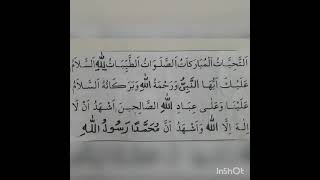 اَلتَّحِيَّاتُ اَلْمُبَارَكَاتُ اَلصَّلَوَاتُ اَلطَّيِّبَاتُ لِلّٰهِ اَلسَّلَامُ
عَلَيْكَ اَيُّهَا النَّبِيُّ وَرَحْمَةُ اللهِ وَبَرَكَاتُهُ اَلسَّلَامُ
عَلَيْنَا وَعَلٰى عِبَادِ اللهِ الصَّالِحِينَ اَشْهَدُ اَنْ لَا
اِلٰهَ اِلَّا اللهُ وَاَشْهَدُ اَنَّ مُحَمَّدًا رَسُولُ اللهِ
InShOt